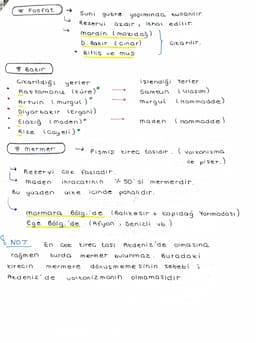 * Fosfat → Suni gübre yapımında kullanılır.
→ Rezervi azdır, ithal edilir.
→ Mardin (mazıdağ)
D. Bakır (Çınar) Çıkarılır.
* Bitlis ve muş
* Bakır
Çıkarıldığı yerler İşlendiği yerler
• Kastamonu (küre)* → Samsun
• Artvin (murgul)* → murgul (hammadde)
• Diyarbakır (Ergani)
• Elazığ (maden)* → maden (hammadde)
• Rize (Çayeli)*
* mermer → Pişmiş kireç taşıdır. (volkanizma
ve pişer.)
→ Rezervi çok fazladır.
→ maden ihracatının % 50'si mermerdir.
Bu yüzden ülke içinde pahalıdır.
→ marmara Bölg.'de (Balıkesir + kapıdağ Yarımadası)
Ege Bölg.'de (Afyon, Denizli vb.)
NOT En çok kireç taşı Akdeniz'de olmasına
rağmen burda mermer bulunmaz. Buradaki
kirecin mermere dönüşmemesinin sebebi;
Akdeniz'de volkanizmanın olmamasıdır